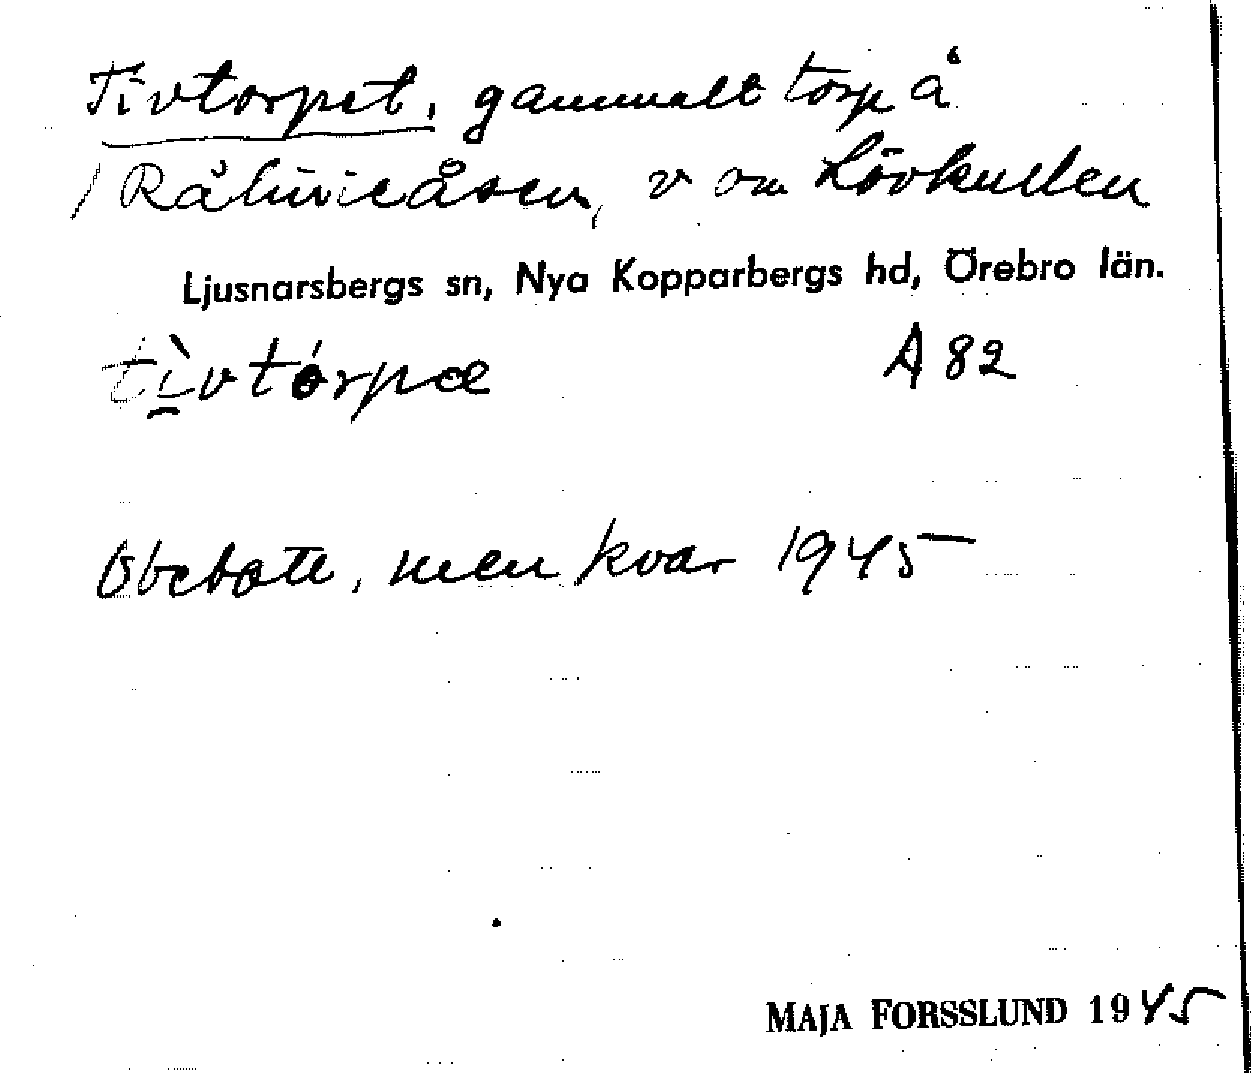 Tivtorpet, gammalt torp å
Råluvieåsen, v om Lövkullen
Ljusnarsbergs sn, Nya Kopparbergs hd, Örebro län.
tìvtórpæ A 82
Obebott, men kvar 1945
MAJA FORSSLUND 1945